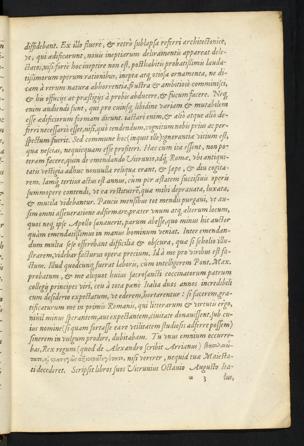 diffidebant. Ex illo fluere, & retrò sublapsa referri architectonice,
re, qui ædificarunt, nimis ineptiarum deliramentis appareat dele-
ctatos; nisi fortè hoc ineptire non est, posthabitis probatissimis lauda-
tissimorum operum rationibus, inepta atq; otiosa ornamenta, ne di-
cam à rerum natura abhorrentia, frustra & ambitiosè comminisci,
& his officijs ac præstigijs à probis abducere, & fucum facere. Neq;
enim audiendi sunt, qui pro cuiusq; libidine variam & mutabilem
esse ædificiorum formam dicunt. iactari enim, & aliò atque aliò de-
firri necessarij esset, nisi, quò tendendum, cognitum nobis prius ac per-
spectum fuerit. Sed commune hoc (inquit ille) ignorantiæ vitium est,
quæ nescias, nequicquam esse profiteri. Hæc cum ita essent, non po-
teram facere, quin de emendando Vitruvio, &
tatis vestigia adhuc nonnulla reliqua erant, & sæpe, & diu cogita-
rem. Iamq; tertius actus est annus, cum
summopere contendi, vt ea restituerē, quæ mihi deprauata, luxata,
& mutila videbantur. Paucis mensibus tot mendis purgaui, vt au-
sim omni asseueratione adfirmare, præter vnum atq; alterum locum,
quos neq; ipse Apollo sanauerit, parum abesse, quo minus hic auctor
quàm emendatissimus in manus hominum veniat. Inter emendan-
dum multa sese offerebant difficilia & obscura, quæ si scholijs illu-
strarem, videbar facturus operæ precium. Id à me pro viribus est fa-
ctum. Illud quodcunq; fuerat laboris, cùm intelligerem Pont. Max.
probatum, & me aliquot huius sacrosancti vocamatorum patrum
collegij principes viri, ceu à tota pene Italia duos annos incredibili
cum desiderio expectatum, vt ederem, hortarentur: si facerem, gra-
tificaturum me in primis Romanis, qui literarum & virtutis ergo,
nihil minus sperantem, aut expectantem, ciuitate donaussent, sub cu-
ius nomine (si quam fortasse eare vtilitatem studiosis adferre possem)
sinerem in vulgum prodire, dubitabam. Tu vnus omnium occurre-
bas, Rex regum (quod de Alexandro scribit Arrianus)
nisi vererer, nequid tuæ Maiesta-
ti decederet. Scripsit libros suos Vitruuius Octauio Augusto Ita-
a 3 liæ,